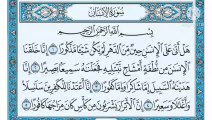 سُورَةُ الإِنسَانِ
بِسْمِ اللَّهِ الرَّحْمَٰنِ الرَّحِيمِ
هَلْ أَتَىٰ عَلَى الْإِنسَٰنِ حِينٌ مِّنَ الدَّهْرِ لَمْ يَكُن شَيْـًٔا مَّذْكُورًا ١ إِنَّا خَلَقْنَا
الْإِنسَٰنَ مِن نُّطْفَةٍ أَمْشَاجٍ نَّبْتَلِيهِ فَجَعَلْنَٰهُ سَمِيعًۢا بَصِيرًا ٢
إِنَّا هَدَيْنَٰهُ السَّبِيلَ إِمَّا شَاكِرًا وَإِمَّا كَفُورًا ٣ إِنَّا أَعْتَدْنَا لِلْكَٰفِرِينَ سَلَٰسِلَا
وَأَغْلَٰلًا وَسَعِيرًا ٤ إِنَّ الْأَبْرَارَ يَشْرَبُونَ مِن كَأْسٍ كَانَ مِزَاجُهَا كَافُورًا ٥